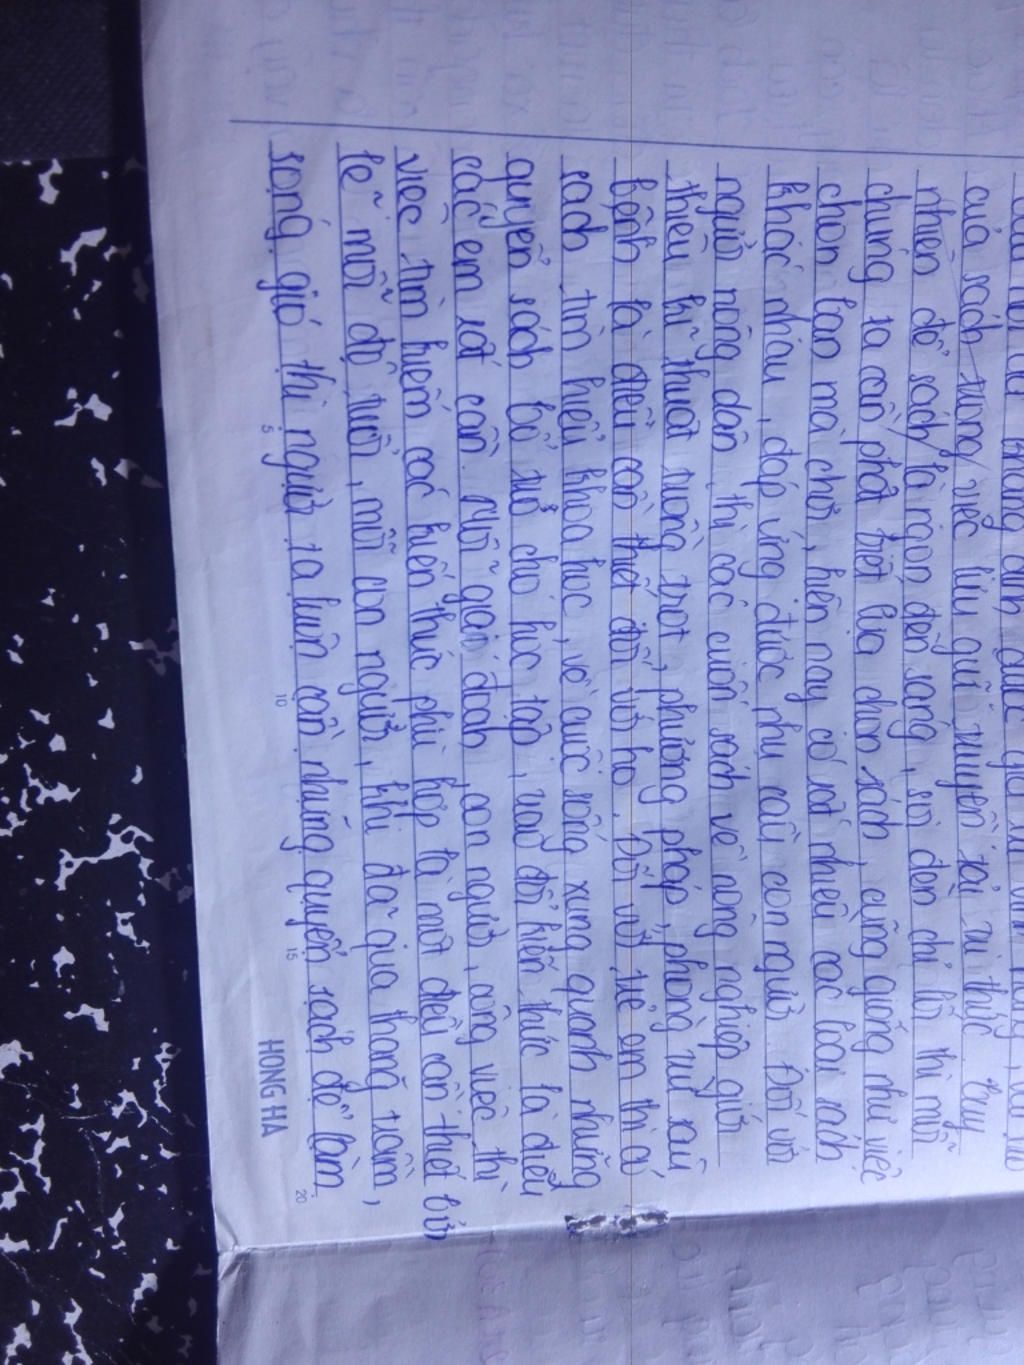 của sách trong việc lưu giữ truyền tải tri thức. Tuy
nhiên để sách là ngọn đèn sáng, soi đèn chỉ lối thì mỗi
chúng ta cần phải biết lựa chọn sách, cũng giống như việc
chọn bạn mà chơi, hiện nay có rất nhiều các loại sách
khác nhau, đáp ứng được nhu cầu con người. Đối với
người nông dân thì các cuốn sách về nông nghiệp giới
thiệu kĩ thuật trồng trọt, phương pháp, phòng trừ sâu
bệnh là điều cần thiết đối với họ. Đối với trẻ em thì có
sách tìm hiểu khoa học, về cuộc sống xung quanh những
quyển sách bổ trợ cho học tập, trao dồi kiến thức là điều
các em rất cần. Mỗi giai đoạn, con người, công việc thì
việc tìm kiếm các kiến thức phù hợp là một điều cần thiết bởi
lẽ mỗi độ tuổi, mỗi con người, khi đã qua thăng trầm,
sóng gió thì người ta luôn cần những quyển sách để làm
5 10 15 20
HONG HA